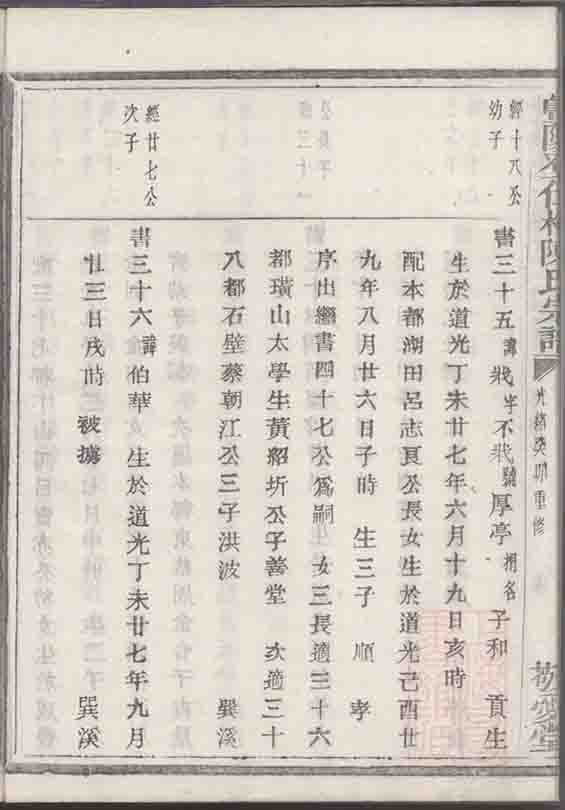 陳氏宗譜
光緒癸卯重修
經十八公
幼子
書三十五諱戕字不戕號厚亭
子和 貢生
生於道光丁未廿七年六月十九日亥時
配本都湖田呂志良公長女生於道光己酉廿
九年八月廿六日子時 生三子 順 孝
序出繼書四十七公爲嗣 女三長適三十六
都璜山太學生黃紹圻公子善堂 次適三十
八都石壁蔡朝江公三子洪波 巽溪
經廿七公
次子
書三十六諱伯華 生於道光丁未廿七年九月
廿三日戌時 被擄 巽溪